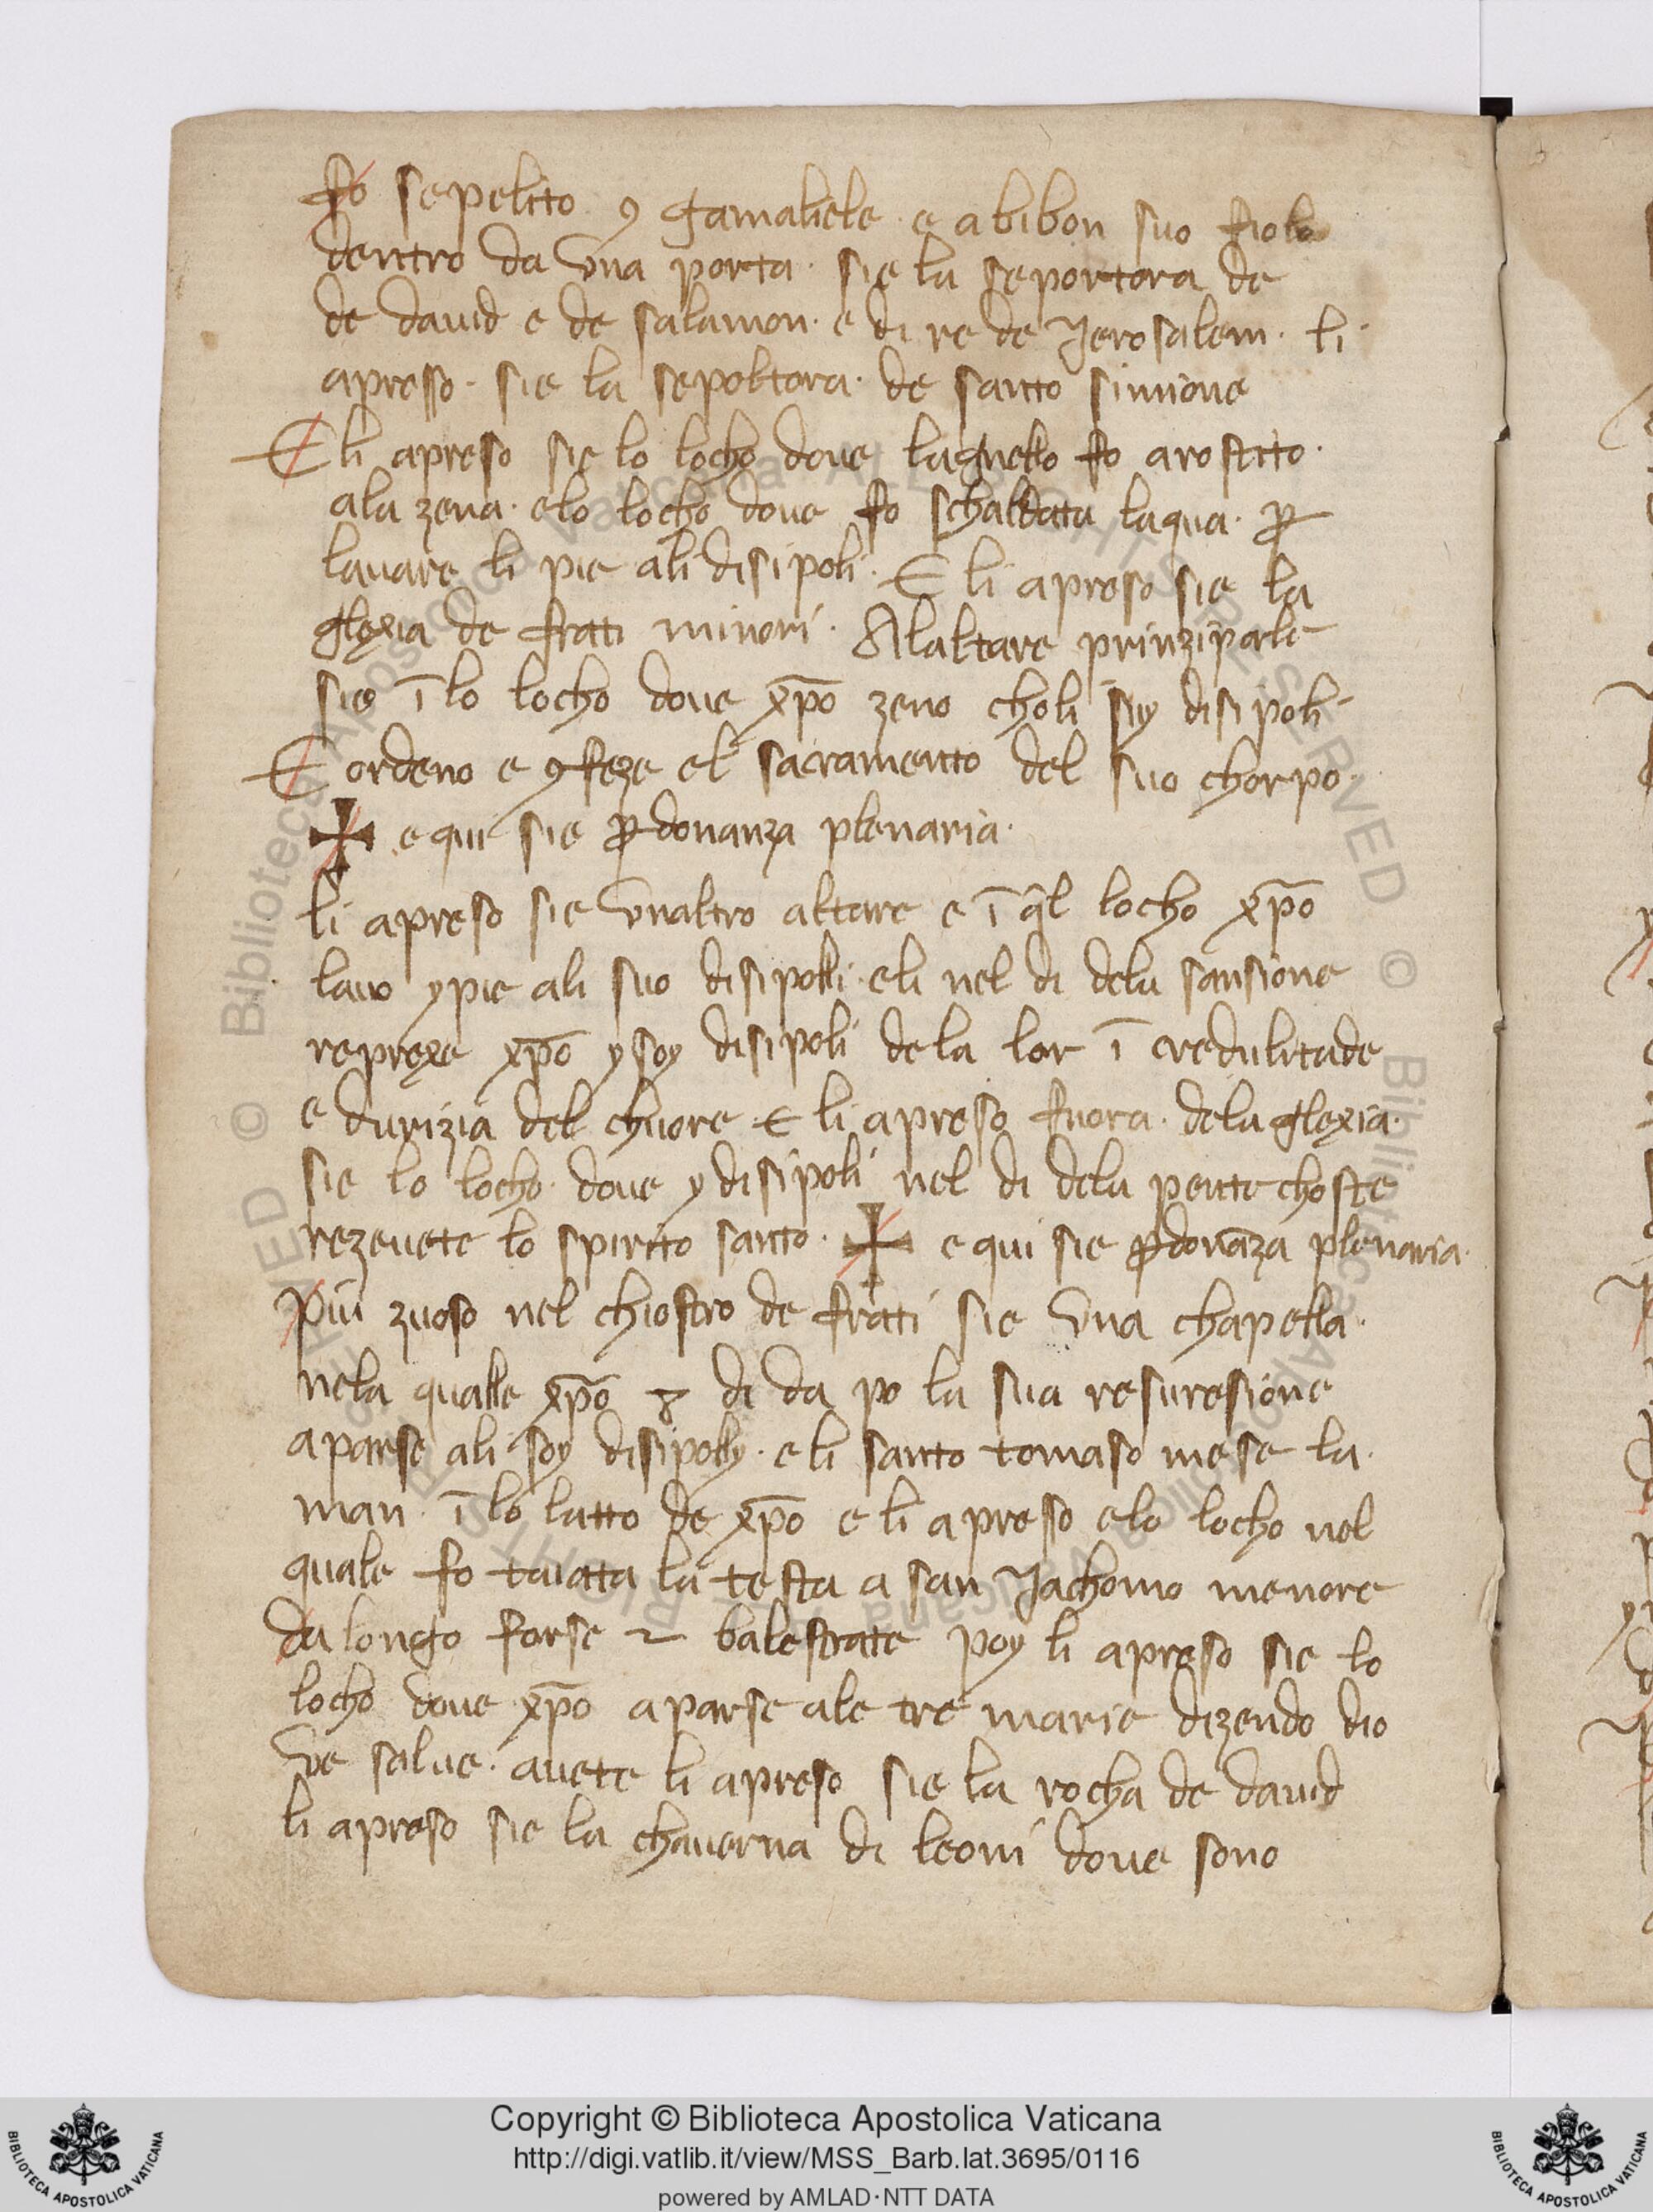 fo sepelito ꝯ gamaliele e abibon suo fiolo
dentro da vna porta · sie la seportora de
de dauid e de salamon · e di re de Jerosalem · li
apresso · sie la sepoltora · de santo simione
E li apreso sie lo locho doue lagnello fo arostito ·
ala zena · elo locho doue fo schaldata laqua · ꝑ
lauare li pie ali disipoli · E li apreso sie la
glexia de frati minori · Alaltare prinzipale
sie ī lo locho doue xp̄o zeno choli siy disipoli
E ordeno e ꝯfeze el sacramento del suo chorpo ·
✠ e qui sie ꝑdonanza plenaria ·
li apreso sie vnaltro altare e ī q̄l locho xp̄o
lauo ypie ali suo disipolli · eli nel di dela sansione
reprexe xp̄o y soy disipoli de la lor ī credulitade
e durizia del chuore · E li apreso fuora · dela glexia ·
sie lo locho doue y disipoli nel di dela pentechoste
rezeuete lo spirito santo · ✠ e qui sie ꝑdonāza plenaria ·
piu zuoso nel chiostro de frati sie vna chapella ·
nela qualle xp̄o 8 di da po la sua resuresione
aparse ali soy disipolly · e li santo tomaso mese la ·
man · ī lo latto de xp̄o e li apresso elo locho nel
quale fo taiatta la testa a san Jachomo menore
da longo forse 2 balestrate poy li apreso sie lo
locho doue xp̄o aparse ale tre marie dizendo dio
ve salue · auete li apreso sie la rocha de dauid
li apreso sie la chauerna di leoni doue sono
Copyright © Biblioteca Apostolica Vaticana
http://digi.vatlib.it/view/MSS_Barb.lat.3695/0116
powered by AMLAD·NTT DATA
BIBLIOTECA APOSTOLICA VATICANA
BIBLIOTECA APOSTOLICA VATICANA